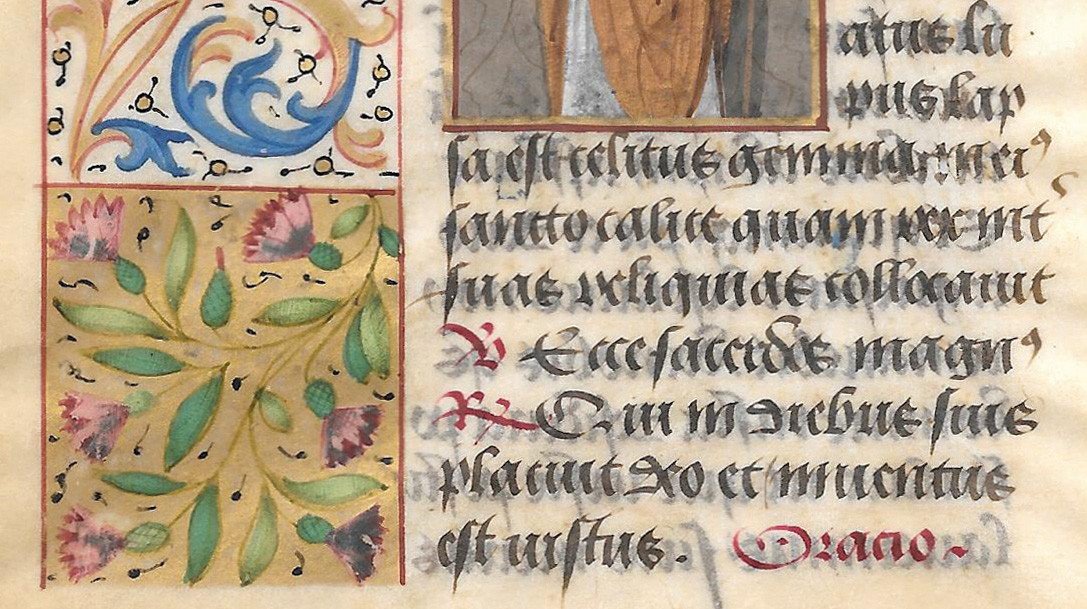 atus lu
pus lap
sa est celitus gemma mei⁹
sancto calice quam rex int
suas reliquias collocauit
V Ecce sacerdos magn⁹
R Qui in diebus suis
placuit deo et inuentus
est iustus. Oracio